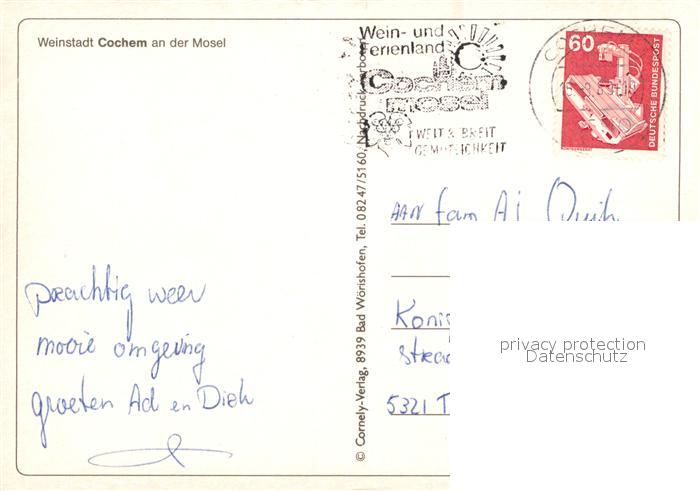 Weinstadt Cochem an der Mosel
Wein- und
Ferienland
Cochem
mosel
WEIT & BREIT
GEMÜTLICHKEIT
60
DEUTSCHE BUNDESPOST
© Cornely-Verlag, 8939 Bad Wörishofen, Tel. 08247/5160, Nachdruck verboten
prachtig weer
mooie omgeving
groeten Ad en Dieh
AAN fam Ai
Konin
Straa
5321 T
privacy protection
Datenschutz